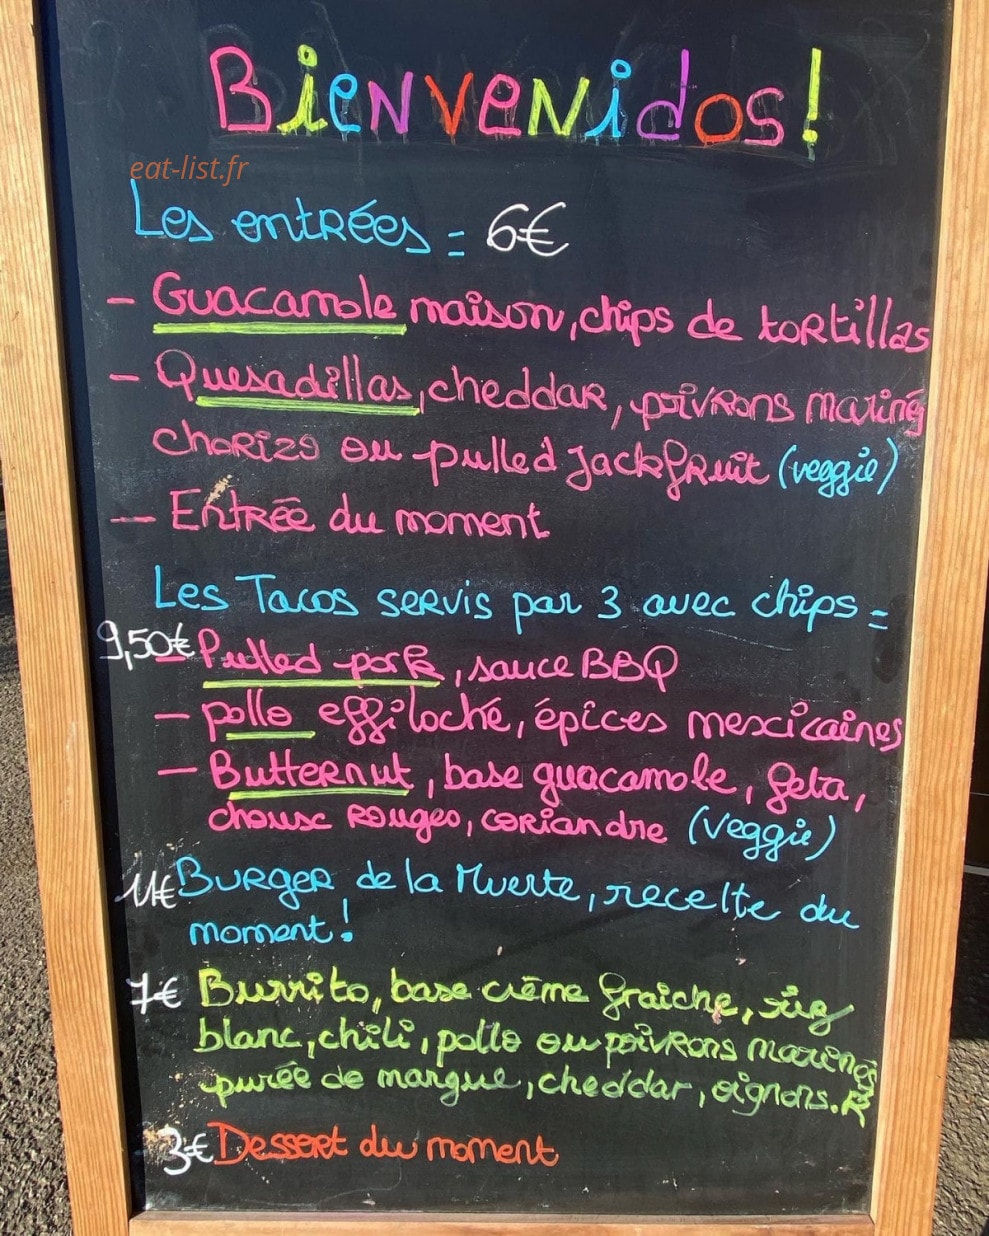 Bienvenidos!
eat-list.fr
Les entrées = 6€
- Guacamole maison, chips de tortillas
- Quesadillas, cheddar, poivrons marinés
chorizo ou pulled jackfruit (veggie)
- Entrée du moment
Les Tacos servis par 3 avec chips =
9,50€ - Pulled pork, sauce BBQ
- pollo effiloché, épices mexicaines
- Butternut, base guacamole, feta,
choux rouges, coriandre (veggie)
11€ Burger de la Muerte, recette du
moment!
7€ Burrito, base crème fraiche, riz
blanc, chili, pollo ou poivrons marinés
purée de mangue, cheddar, oignons.R
3€ Dessert du moment